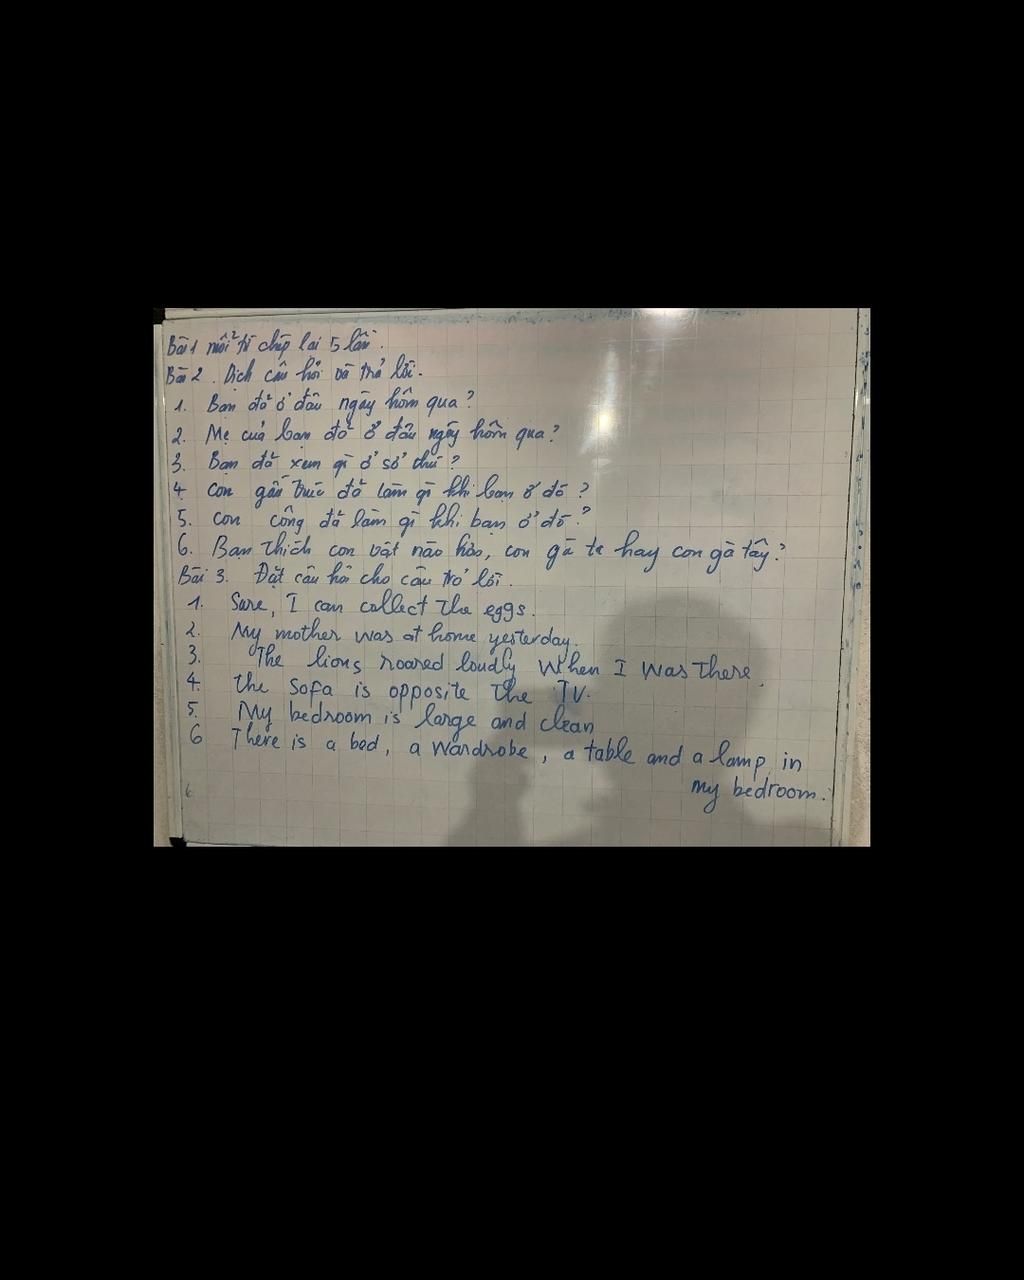 Bài 1 mỗi từ chép lại 5 lần.
Bài 2. Dịch câu hỏi và trả lời.
1. Bạn đã ở đâu ngày hôm qua?
2. Mẹ của bạn đã ở đâu ngày hôm qua?
3. Bạn đã xem gì ở sở thú?
4. Con gấu trúc đã làm gì khi bạn ở đó?
5. con công đã làm gì khi bạn ở đó?
6. Bạn thích con vật nào hơn, con gà ta hay con gà tây?
Bài 3. Đặt câu hỏi cho câu trả lời.
1. Sure, I can collect the eggs.
2. My mother was at home yesterday.
3. The lions roared loudly when I was there.
4. the sofa is opposite the TV.
5. My bedroom is large and clean
6 There is a bed, a wardrobe, a table and a lamp in
my bedroom.
6